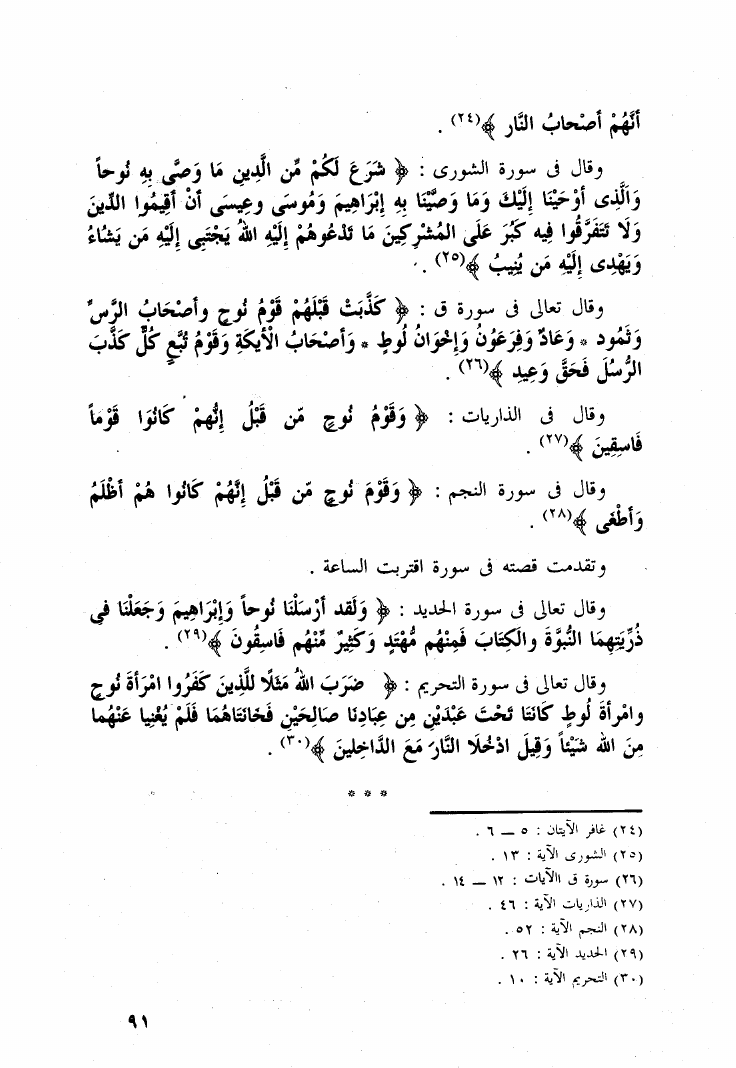 أنَّهُمْ أصْحابُ النَّار ﴾(٢٤) .
وقال فى سورة الشورى : ﴿ شَرَعَ لَكُمْ مِّن الَّدِينِ مَا وَصَّى بِهِ نُوحاً
وَالَّذِى أوْحَيْنَا إلَيْكَ وَمَا وَصَّيْنَا بِهِ إبْرَاهِيمَ وَمُوسَى وعِيسَى أنْ أقِيمُوا الدِّينَ
وَلَا تَتَفَرَّقُوا فِيه كَبُرَ عَلَى المُشْرِكِينَ مَا تَدْعُوهُمْ إلَيْهِ اللهُ يَجْتَبِى إلَيْهِ مَن يَشَاءُ
وَيَهْدِى إلَيْهِ مَن يُنِيبُ ﴾(٢٥) .
وقال تعالى فى سورة ق : ﴿ كَذَّبَتْ قَبْلَهُمْ قَوْمُ نُوحٍ وأصْحَابُ الرَّسِّ
وَثَمُود * وَعَادٌ وَفِرْعَوْنُ وَإخْوَانُ لُوطٍ * وَأصْحَابُ الْأيكَةِ وَقَوْمُ تُبَّعٍ كُلٌّ كَذَّبَ
الرُّسُلَ فَحَقَّ وَعِيدِ ﴾(٢٦) .
وقال فى الذاريات : ﴿ وَقَوْمُ نُوحٍ مّن قَبْلُ إنُّهمْ كَانُوَا قَوْمَاً
فَاسِقِينَ ﴾(٢٧) .
وقال فى سورة النجم : ﴿ وَقَوْمَ نُوحٍ مّن قَبْلُ إنَّهُمْ كَانُوا هُمْ أظْلَمُ
وَأطْغَى ﴾(٢٨) .
وتقدمت قصته فى سورة اقتربت الساعة .
وقال تعالى فى سورة الحديد : ﴿ وَلَقد أرْسَلْنَا نُوحاً وَإبْرَاهِيمَ وَجَعَلْنَا فِى
ذُرِّيَتِهِمَا النُّبوَّةَ والكِتَابَ فَمِنْهُم مُّهْتَدٍ وَكَثِيرٌ مِّنْهُم فَاسِقُونَ ﴾(٢٩) .
وقال تعالى فى سورة التحريم : ﴿ ضرَبَ اللهُ مَثَلًا للَّذِينَ كَفَرُوا امْرَأةَ نُوحٍ
وامْرأةَ لُوطٍ كَانَتَا تَحْتَ عَبْدَيْنِ مِن عِبَادِنَا صَالِحَيْنِ فَخَانَتَاهُمَا فَلَمْ يُغْنِيا عَنْهُما
مِنَ الله شَيْئاً وَقِيلَ ادْخُلَا النَّارَ مَعَ الدَّاخِلينَ ﴾(٣٠) .
* * *
(٢٤) غافر الآيتان : ٥ ــ ٦ .
(٢٥) الشورى الآية : ١٣ .
(٢٦) سورة ق االآيات : ١٢ ــ ١٤ .
(٢٧) الذاريات الآية : ٤٦ .
(٢٨) النجم الآية : ٥٢ .
(٢٩) الحديد الآية : ٢٦ .
(٣٠) التحريم الآية : ١٠ .
٩١